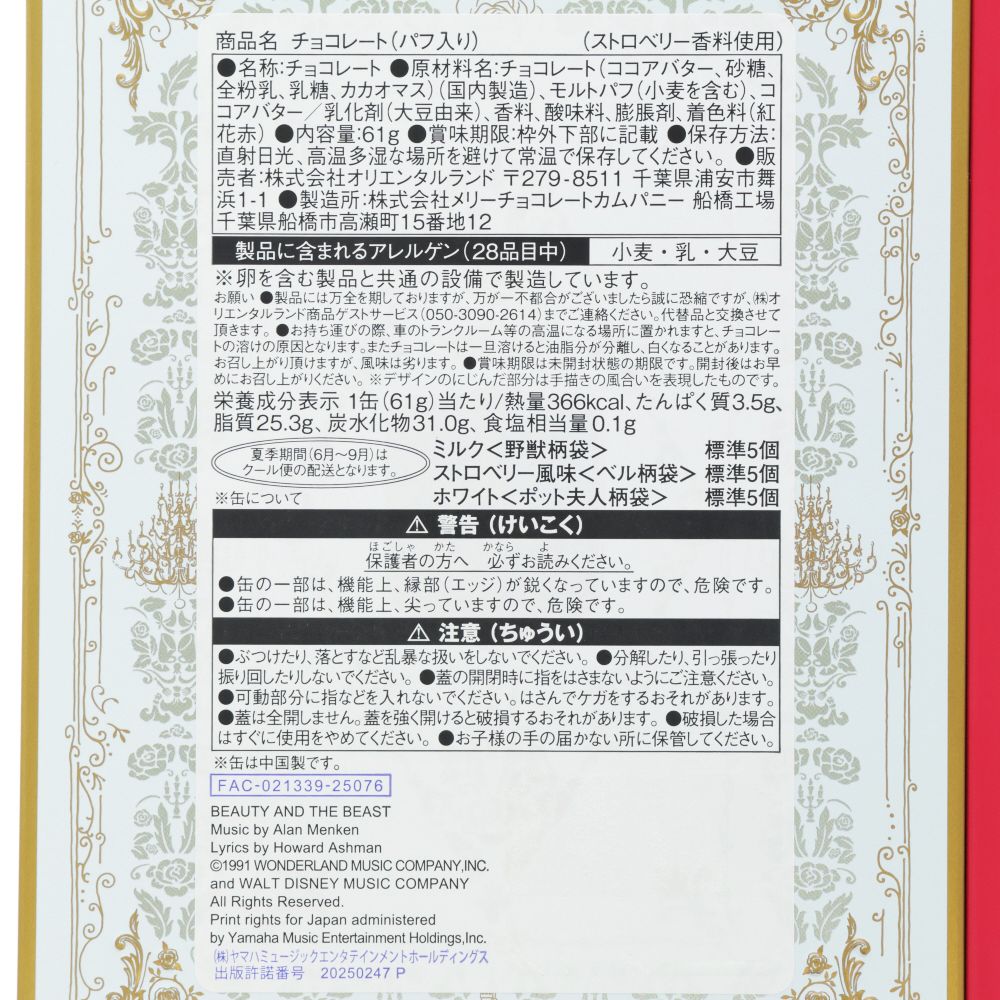 商品名 チョコレート（パフ入り） （ストロベリー香料使用）
●名称:チョコレート ●原材料名:チョコレート（ココアバター、砂糖、
全粉乳、乳糖、カカオマス）（国内製造）、モルトパフ（小麦を含む）、コ
コアバター／乳化剤（大豆由来）、香料、酸味料、膨脹剤、着色料（紅
花赤） ●内容量:61g ●賞味期限:枠外下部に記載 ●保存方法:
直射日光、高温多湿な場所を避けて常温で保存してください。 ●販
売者:株式会社オリエンタルランド 〒279-8511 千葉県浦安市舞
浜1-1 ●製造所:株式会社メリーチョコレートカムパニー 船橋工場
千葉県船橋市高瀬町15番地12
製品に含まれるアレルゲン（28品目中） 小麦・乳・大豆
※卵を含む製品と共通の設備で製造しています。
お願い ●製品には万全を期しておりますが、万が一不都合がございましたら誠に恐縮ですが、㈱オ
リエンタルランド商品ゲストサービス（050-3090-2614）までご連絡ください。代替品と交換させて
頂きます。 ●お持ち運びの際、車のトランクルーム等の高温になる場所に置かれますと、チョコレー
トの溶けの原因となります。またチョコレートは一旦溶けると油脂分が分離し、白くなることがあります。
お召し上がり頂けますが、風味は劣ります。 ●賞味期限は未開封状態の期限です。開封後はお早
めにお召し上がりください。 ※デザインのにじんだ部分は手描きの風合いを表現したものです。
栄養成分表示 1缶（61g）当たり/熱量366kcal、たんぱく質3.5g、
脂質25.3g、炭水化物31.0g、食塩相当量0.1g
夏季期間（6月〜9月）は
クール便の配送となります。
ミルク＜野獣柄袋＞ 標準5個
ストロベリー風味＜ベル柄袋＞ 標準5個
ホワイト＜ポット夫人柄袋＞ 標準5個
※缶について
⚠ 警告（けいこく）
ほごしゃ かた かなら よ
保護者の方へ 必ずお読みください。
●缶の一部は、機能上、縁部（エッジ）が鋭くなっていますので、危険です。
●缶の一部は、機能上、尖っていますので、危険です。
⚠ 注意（ちゅうい）
●ぶつけたり、落とすなど乱暴な扱いをしないでください。 ●分解したり、引っ張ったり
振り回したりしないでください。 ●蓋の開閉時に指をはさまないようにご注意ください。
●可動部分に指などを入れないでください。はさんでケガをするおそれがあります。
●蓋は全開しません。蓋を強く開けると破損するおそれがあります。 ●破損した場合
はすぐに使用をやめてください。 ●お子様の手の届かない所に保管してください。
※缶は中国製です。
FAC-021339-25076
BEAUTY AND THE BEAST
Music by Alan Menken
Lyrics by Howard Ashman
©1991 WONDERLAND MUSIC COMPANY,INC.
and WALT DISNEY MUSIC COMPANY
All Rights Reserved.
Print rights for Japan administered
by Yamaha Music Entertainment Holdings,Inc.
㈱ヤマハミュージックエンタテインメントホールディングス
出版許諾番号 20250247 P